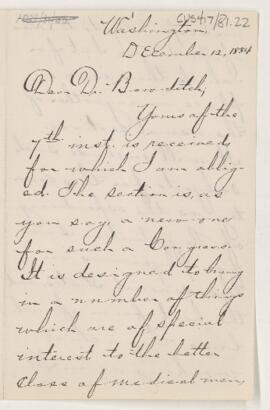 CUS417/81.22
Washington,
December 12, 1884
Dear Dr. Bowditch,
Yours of the
7th inst. is received,
for which I am oblig-
ed. The section is, as
you say, a new one
for such a Congress.
It is designed to bring
in a number of things
which are of special
interest to the better
class of medical men,